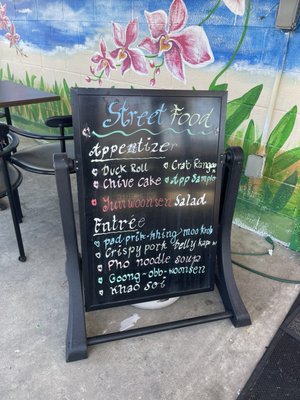 Street Food
Appetizer
Duck Roll Crab Rangoon
Chive Cake App Sampler
Yunwoonsen Salad
Entrée
pad prik-khing/moo krob
Crispy pork belly kapow
Pho noodle soup
Goong-obb-woonsen
Khao Soi